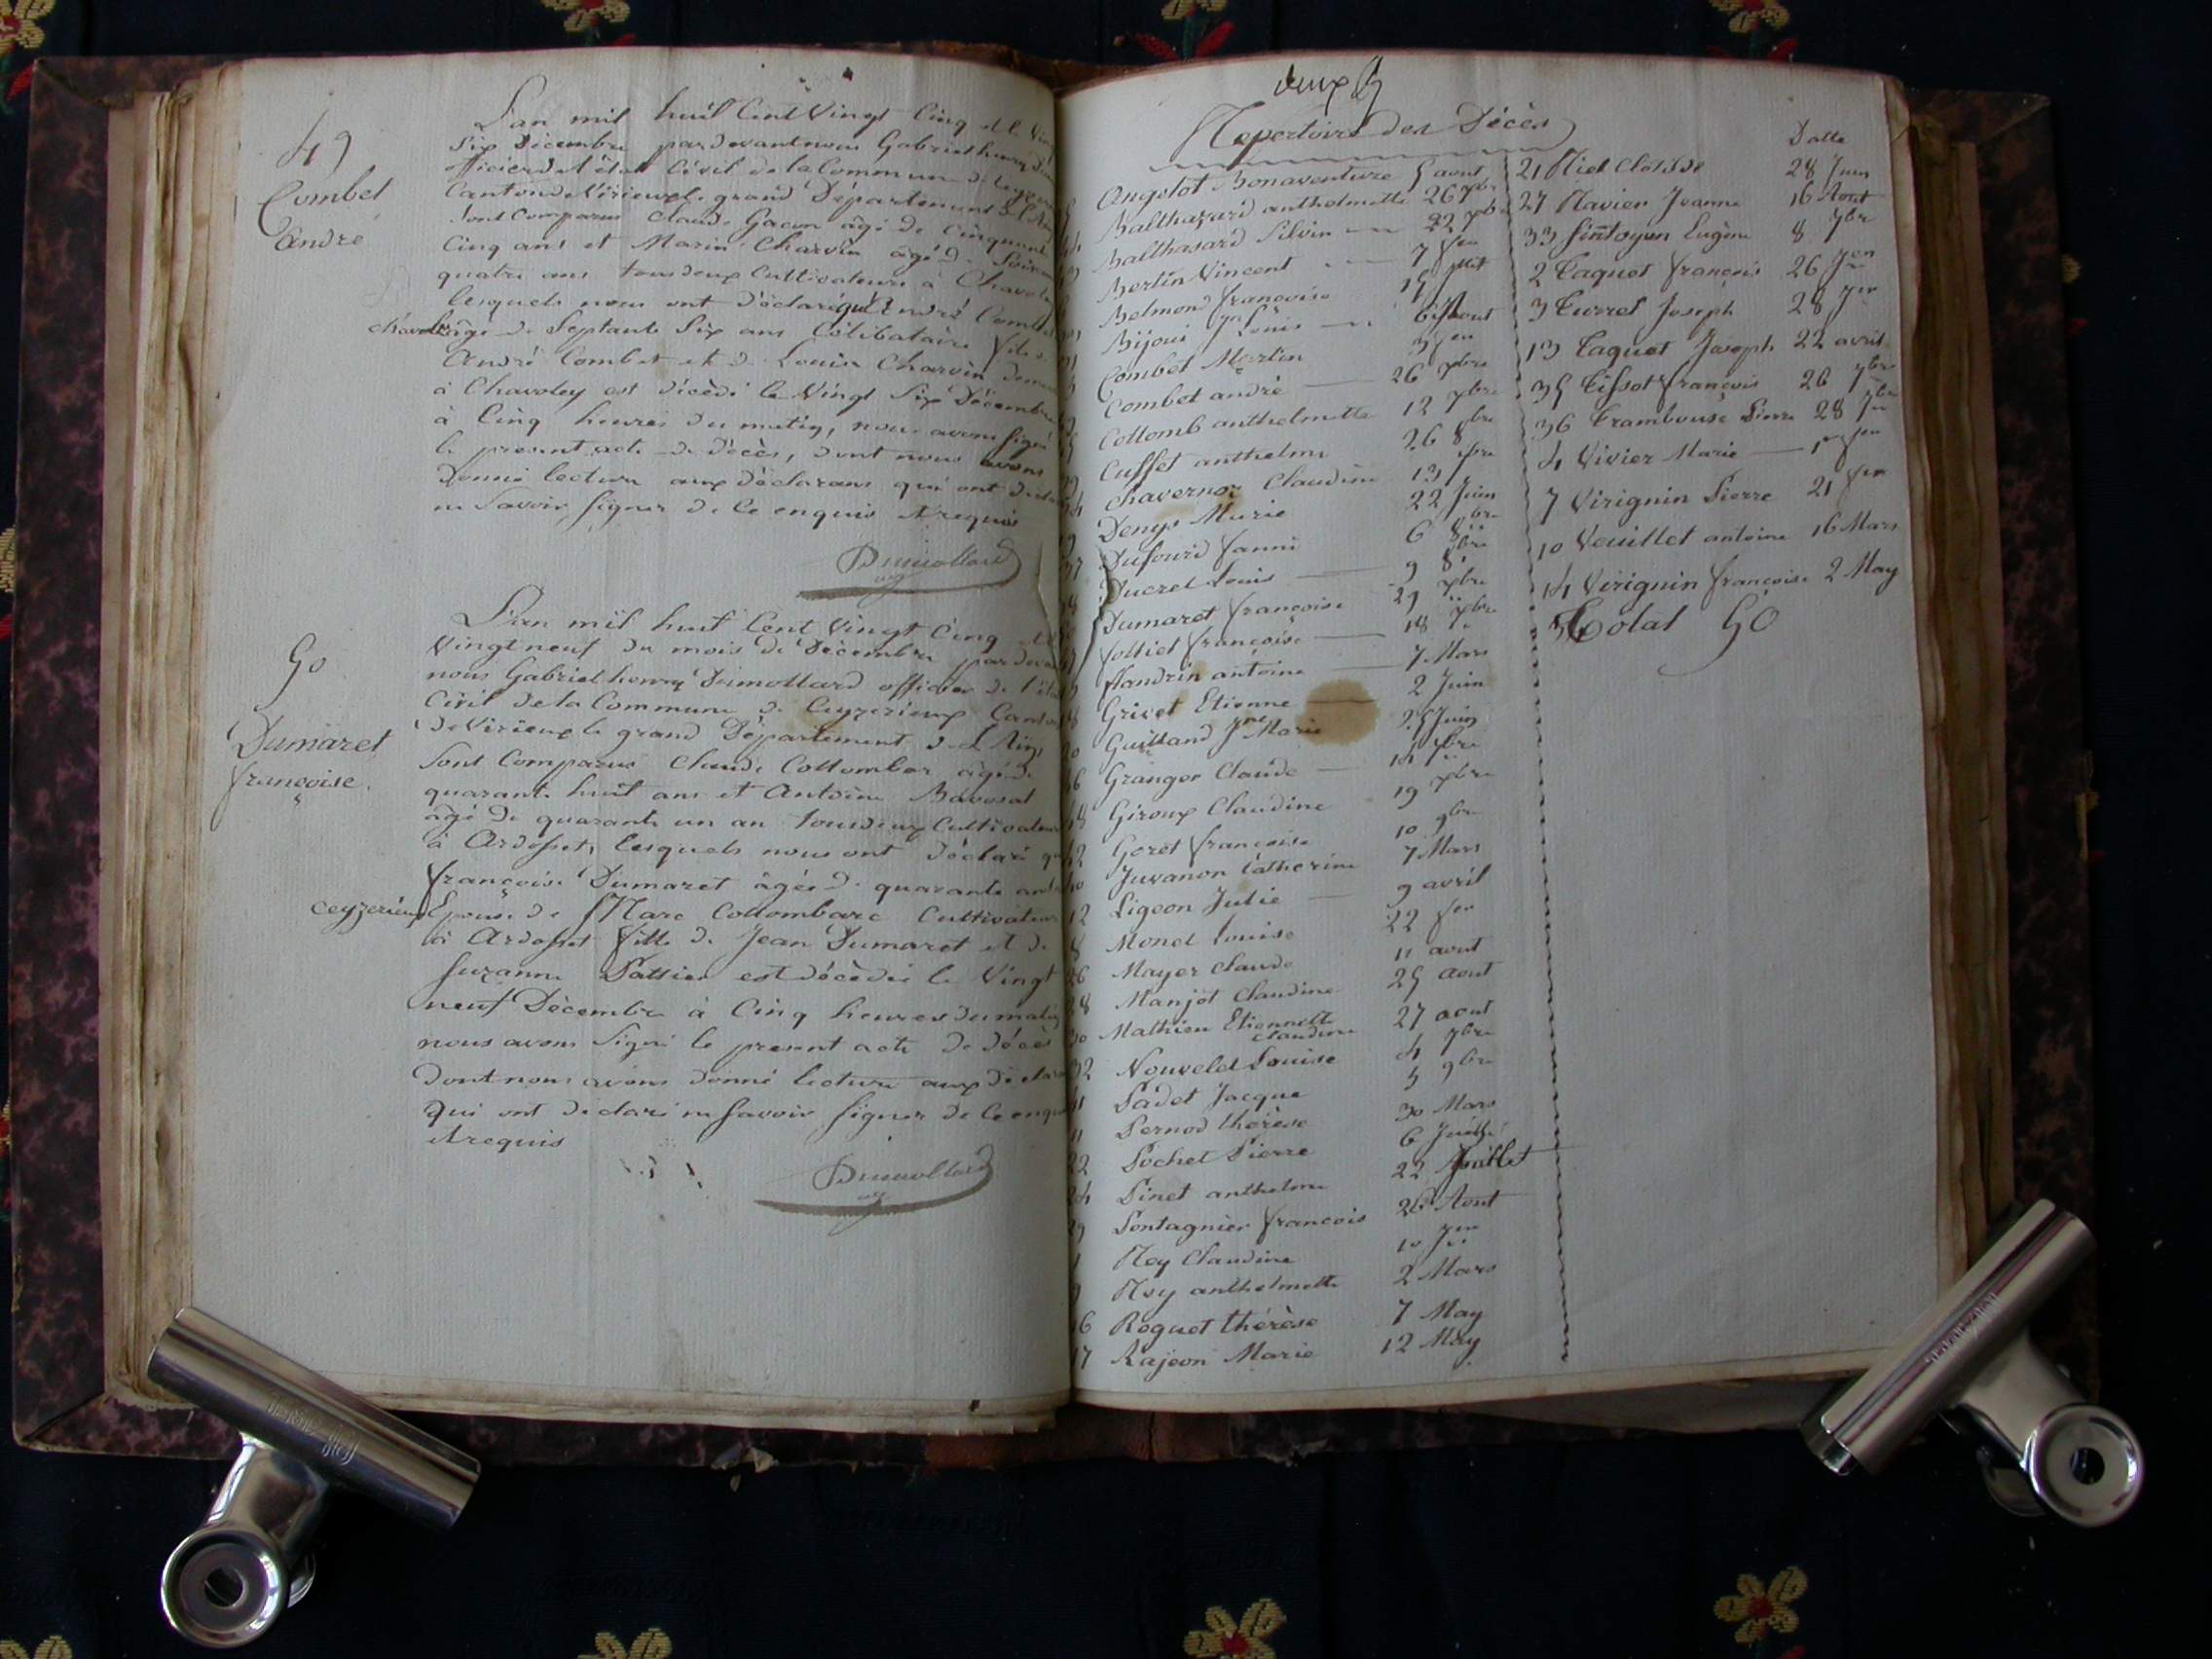 49
Combet
André
L'an mil huit Cent Vingt Cinq et le Vingt
Six Décembre par devant nous Gabriel henry
officier de l'état Civil de la Commune de Ceyzerieux
Canton de Virieux le grand Département de l'Ain
Sont Comparus Claude Gacon âgé de Cinquante
Cinq ans et Marin Charvin âgé de Soixante
quatre ans tous deux Cultivateurs à Chavoley
lesquels nous ont déclaré que André Combet
chavoley
âgé de Septante Six ans Célibataire fils de
André Combet et de Louise Charvin
à Chavoley est décèdé le Vingt Six Décembre
à Cinq heures du matin, nous avons signé
le present acte de décès, dont nous avons
donné lecture aux déclarans qui ont
ne Savoir Signer de Ce enquis et requis
Dumollard
50
Dumaret
françoise.
L'an mil huit Cent Vingt Cinq et le
Vingt neuf du mois de Décembre par devant
nous Gabriel henry Dumollard officier de l'état
Civil de la Commune de Ceyzerieux Canton
de Virieux le grand Département de L'Ain,
Sont Comparus Claude Collomber âgé de
quarante huit ans et Antoine Bavosat
âgé de quarante un an tous deux Cultivateurs
à Ardosset, lesquels nous ont déclaré que
françoise Dumaret âgée de quarante ans
ceyzerieux
Epouse de Marc Collombare Cultivateur
à Ardosset fille de Jean Dumaret et de
Suzanne est décèdée le Vingt
neuf Décembre à Cinq heures du matin
nous avons Signé le present acte de décès
Dont nous avons donné lecture aux
qui ont déclaré ne Savoir Signer de Ce enquis
et requis
Dumollard
deux
Repertoire des Décès
Datte
Angelot Bonaventure 5 avril
Balthazard anthelmette 26 7bre
Balthasard Silvin 22
Bertin Vincent 7 Jer
Belmond françoise
Bijoui Louis
Combet Martin 3 Jer
Combet andré 26 Xbre
Collomb anthelmette 12 Xbre
Cuffet anthelme 26 8bre
Chavernoz Claudine 13
Denys Marie 22 Juin
Dufourd fanni 6 8bre
Ducret Louis 9 8bre
Dumaret françoise 29 Xbre
Jolliet françoise 18 Xbre
flandrin antoine 7 Mars
Grivet Etienne 2 Juin
Guilland Jne Marie 25 Juin
Granger Claude
Giroux Claudine 19 Xbre
Goret françoise 10 9bre
Juvanon Catherine 7 Mars
12 Ligeon Julie 9 avril
8 Monet Louise 22 fer
26 Mayer Claude 11 aout
28 Manjot Claudine 25 aout
30 Mathieu Etiennette Claudine 27 aout
32 Nouvelet Louise 4 7bre
41 Padet Jacque 5 9bre
11 Pernod thérèse 30 Mars
22 Pochet Pierre 6 Juillet
24 Pinet anthelme 22 Juillet
29 Pontagnier francois 26 Aout
1 Rey Claudine 10 Jer
9 Roy anthelmette 2 Mars
16 Roguet thérèse 7 May
17 Rajeon Marie 12 May
21 Riet Clotilde 28 Juin
27 Ravier Jeanne 16 Aout
33 Sintoyen Eugène 8 7bre
2 Taquet françois 26 Jer
3 Turret Joseph 28 Jer
13 Taquet Joseph 22 avril
35 Tissot françois 26 7bre
36 Trambouse Pierre 28 7bre
4 Vivier Marie 1er fer
7 Virignin Pierre 21 fer
10 Veuillet antoine 16 Mars
14 Virignin françoise 2 May
Total 50